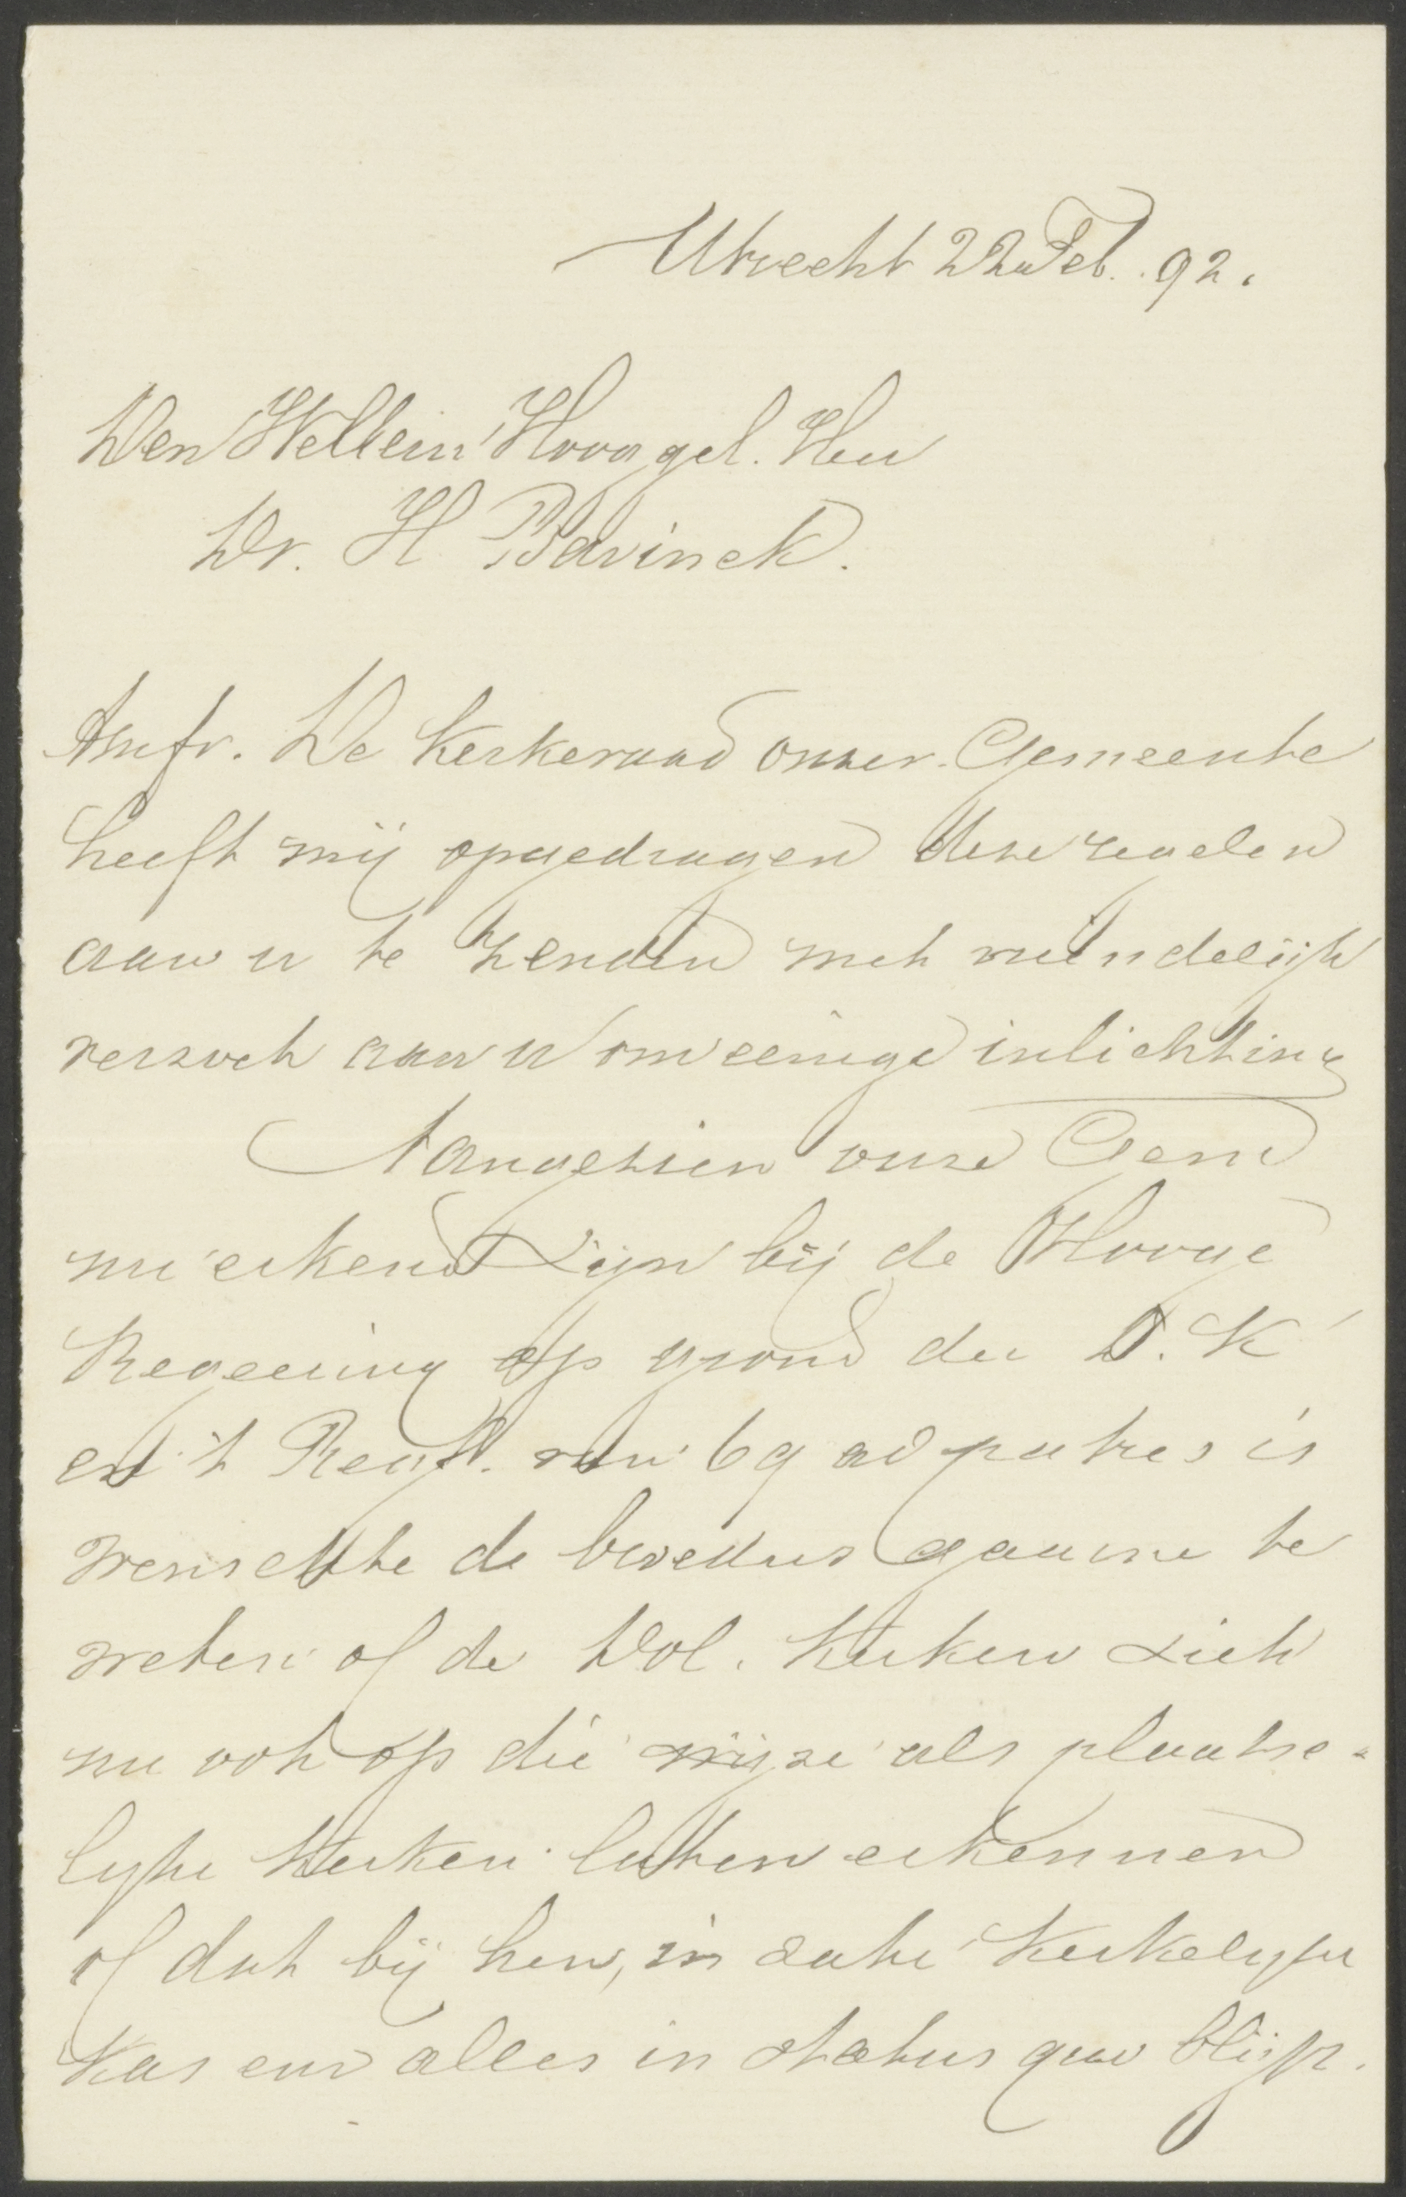 Utrecht 22 Feb. 92.
Den WelEerw Hooggel. Heer
Dr. H Bavinck.
Amfr. De Kerkeraad onzer Gemeente
heeft mij opgedragen deze regelen
aan u te zenden met vriendelijk
verzoek aan u om eenige inlichting
Aangezien onze Gem
nu erkend zijn bij de Hooge
Regeering op grond der D. K
en 't Regl. van 69 ad patres is
wenschte de broeders gaarne te
weten of de Dol. Kerken zich
nu ook op die wijze als plaatse-
lyke Kerken laten erkennen
of dat bij hen, in zake Kerkelyke
Kas enz alles in status quo blijft.